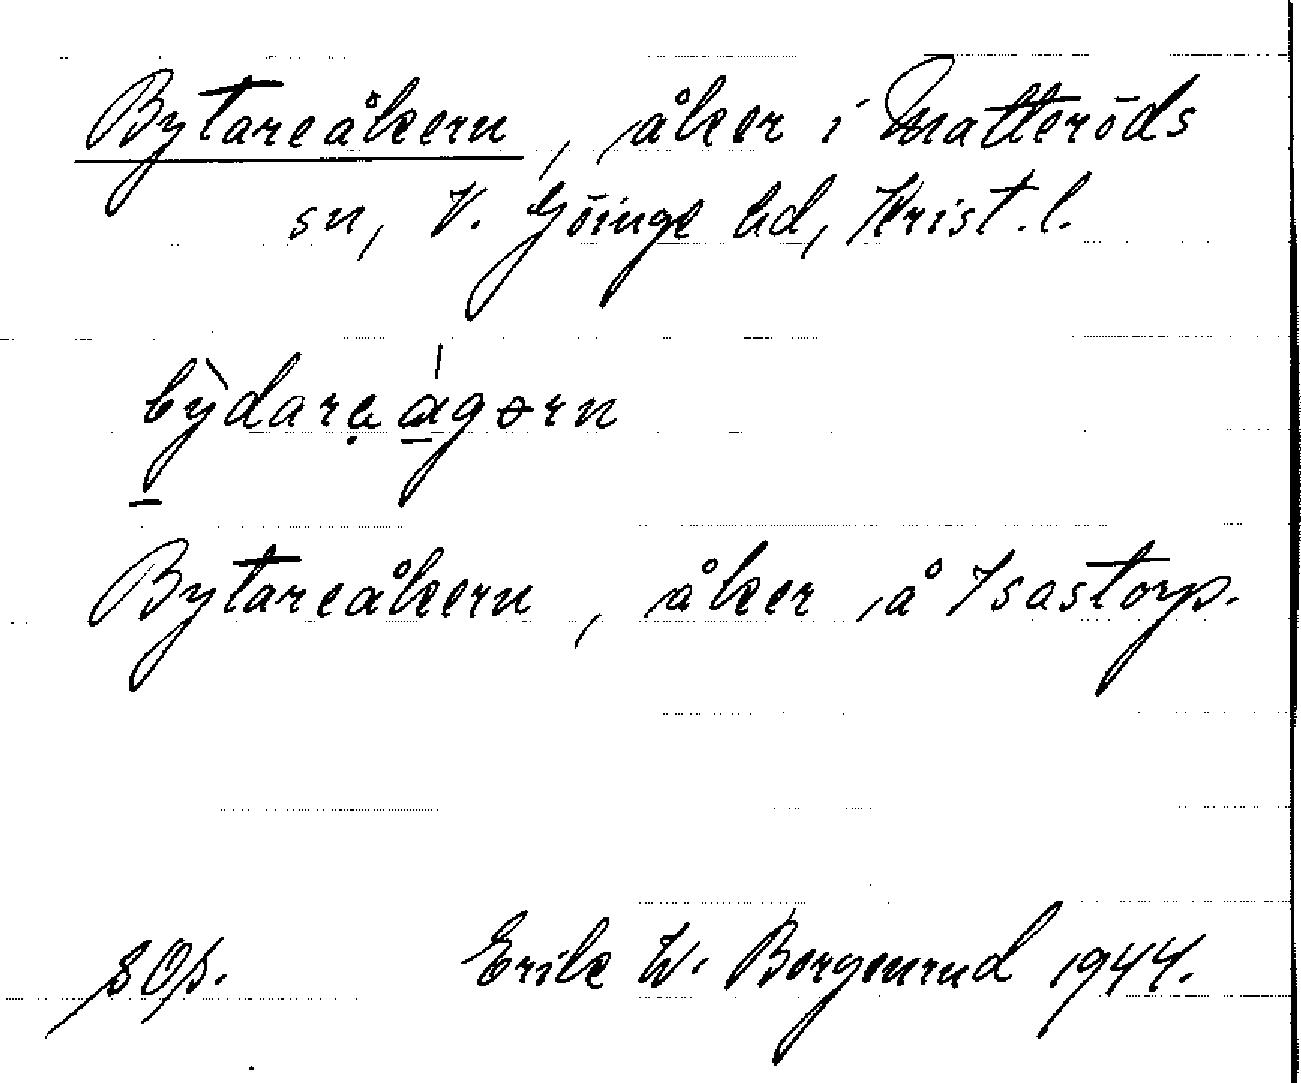 Bytareåkern, åker i Matteröds
sn, V. Göinge hd, Krist. l.
bỳdarẹ ágərn
Bytareåkern, åker å Isastorp.
Erik W. Borgenrud 1944.